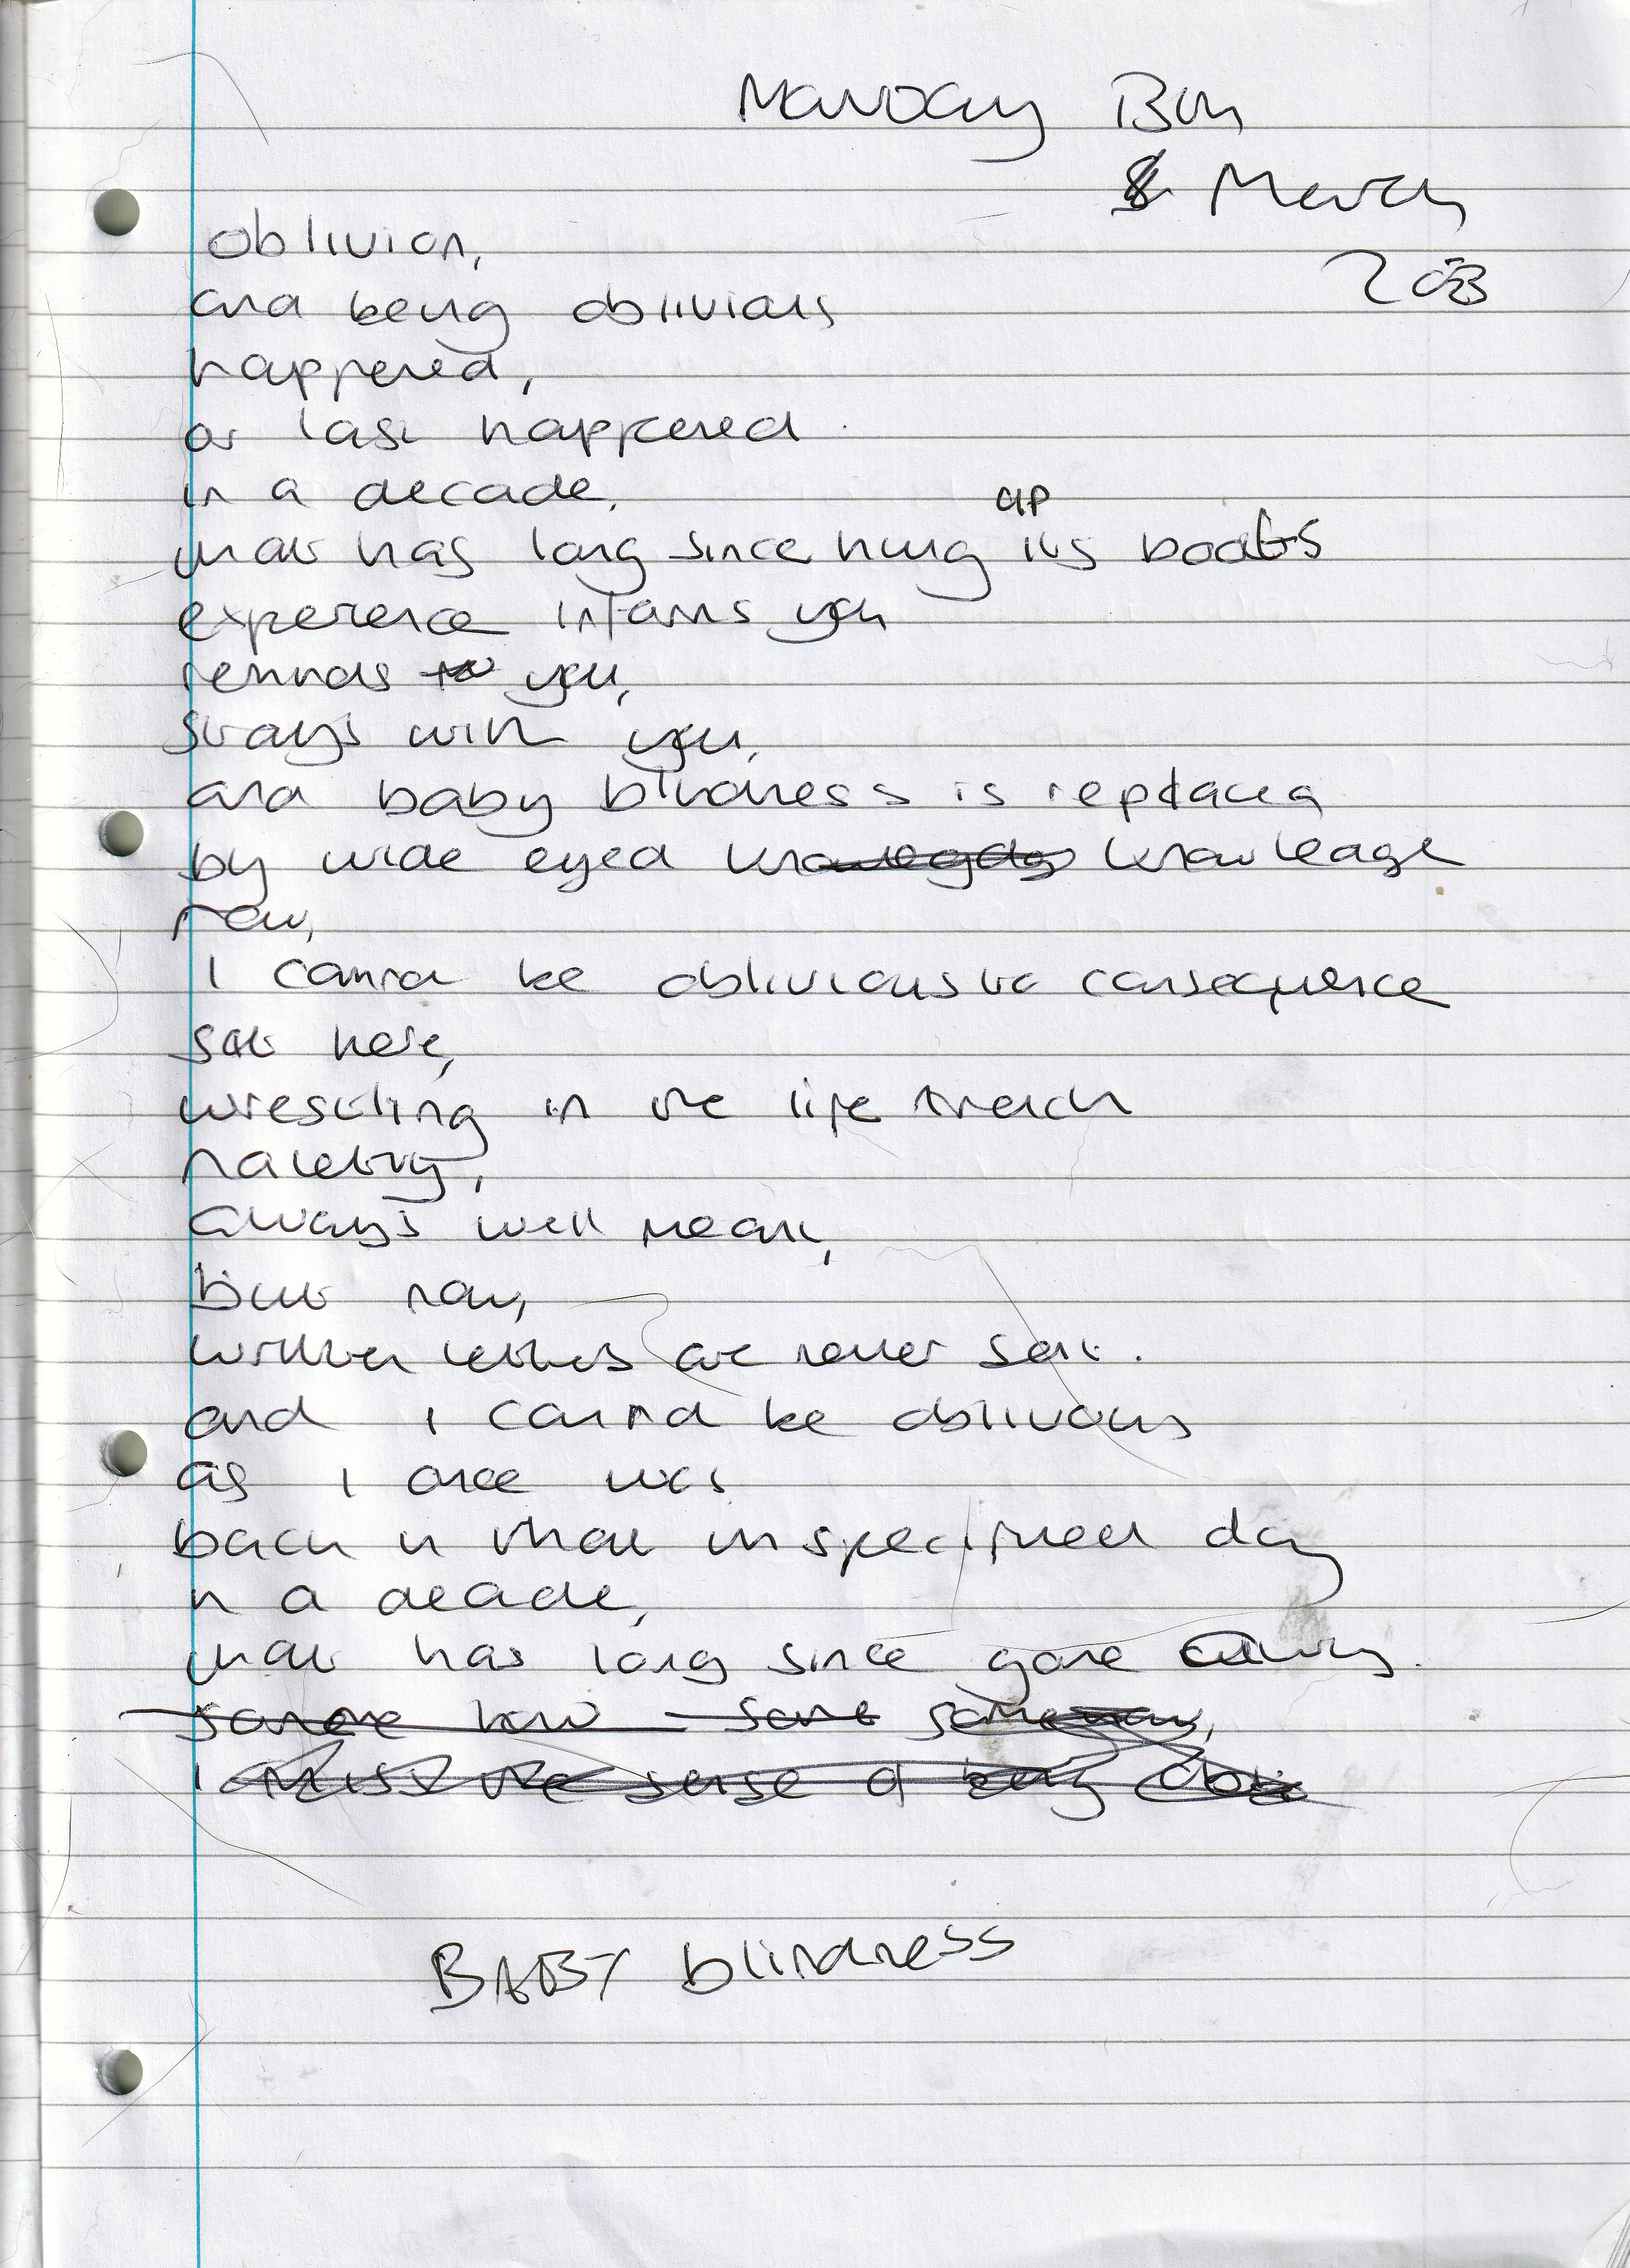 Monday 8th
March
2013
oblivion,
and being oblivious
happened,
or last happened
in a decade,
that has long since hung up its boots
experience informs you
reminds to you,
stays with you,
and baby blindness is replaced
by wide eyed knowledge
now,
I cannot be oblivious to consequence
sat here,
wrestling in the life trench
naievity,
always well meant,
but now,
written letters are never sent.
and I cannot be oblivious
as I once was
back in that unspecified day
in a decade,
that has long since gone away.
someone how some somehow,
I miss the sense of being obli
BABY blindness